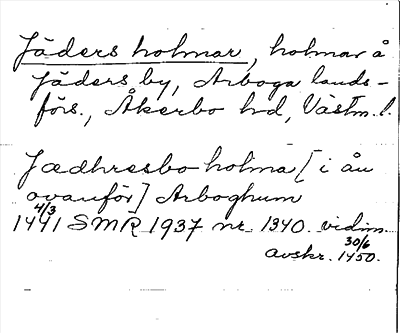 Jäders holmar, holmar å
Jäders by, Arboga lands-
förs., Åkerbo hd, Västm. l.
Jædhresbo holma [i ån
ovanför] Arboghum
4/3
1441 SMR 1937 nr 1340. vidim.
30/6
avskr. 1450.